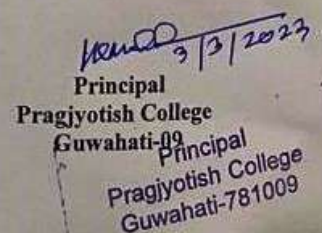 3/3/2023
Principal
Pragjyotish College
Guwahati-09
Principal
Pragjyotish College
Guwahati-781009